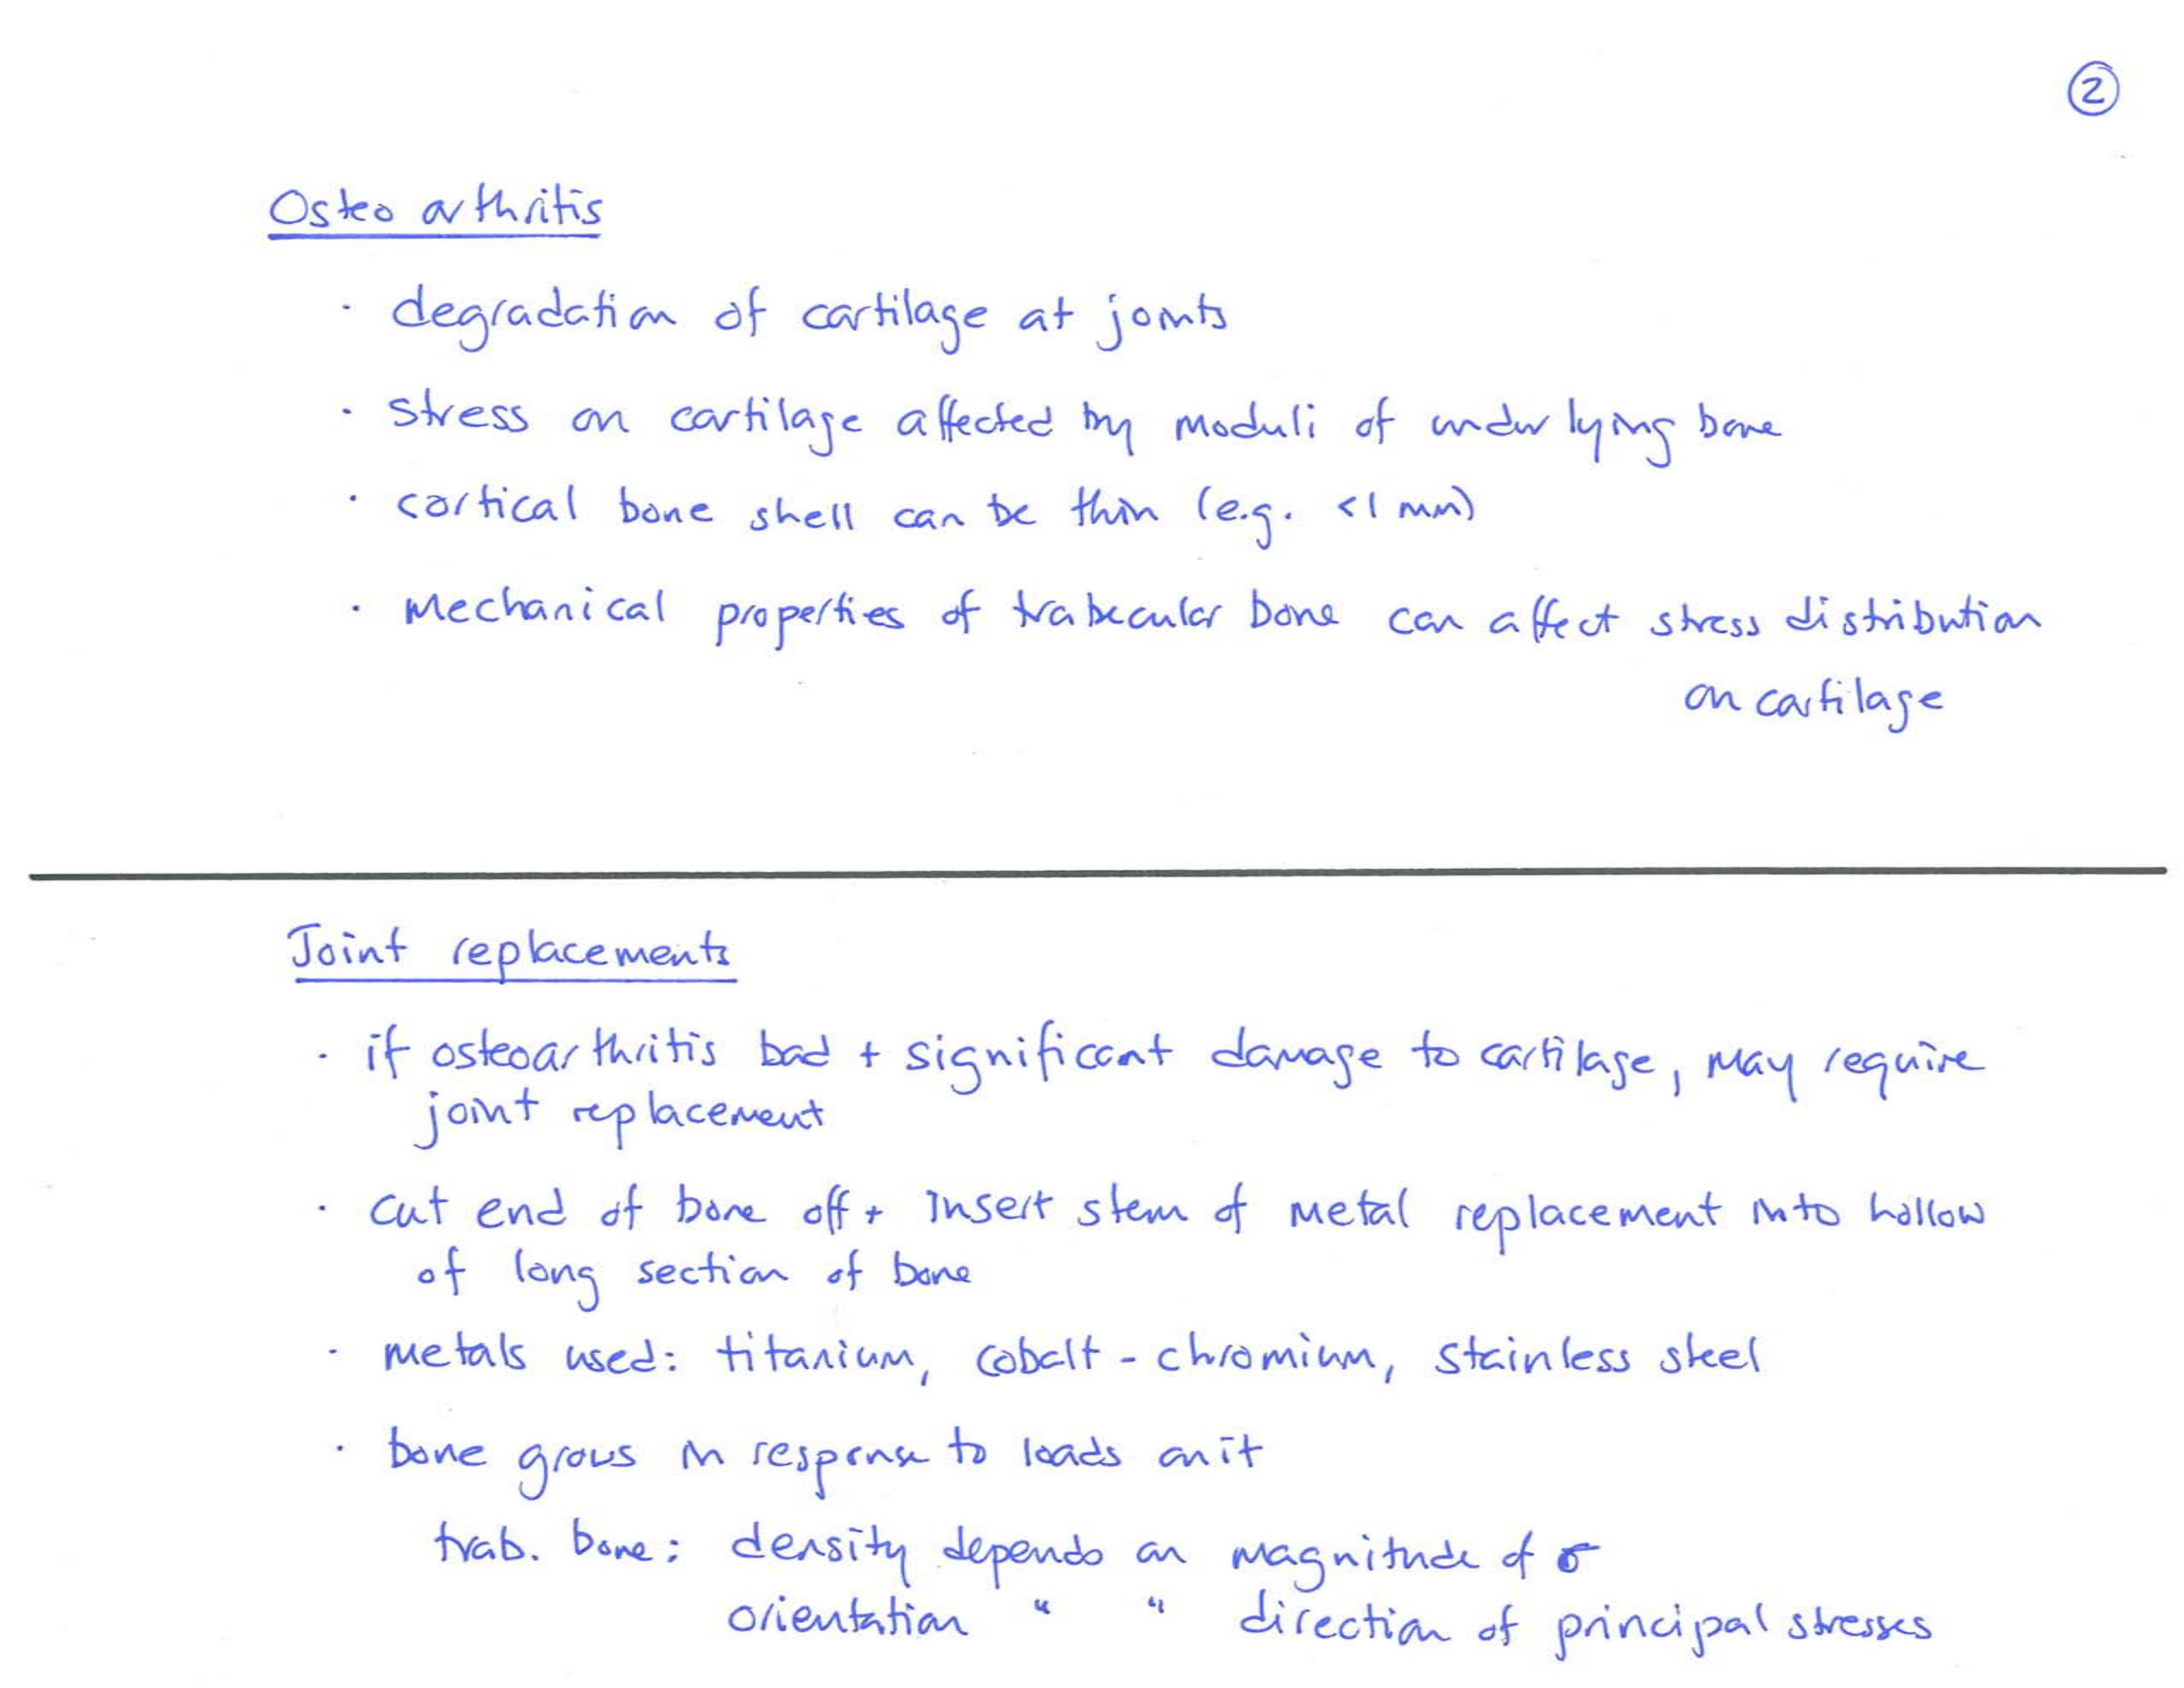 2
Osteoarthritis
· degradation of cartilage at joints
· stress on cartilage affected by moduli of underlying bone
· cortical bone shell can be thin (e.g. <1 mm)
· mechanical properties of trabecular bone can affect stress distribution
on cartilage
Joint replacements
· if osteoarthritis bad + significant damage to cartilage, may require
joint replacement
· cut end of bone off + insert stem of metal replacement into hollow
of long section of bone
· metals used: titanium, cobalt-chromium, stainless steel
· bone grows in response to loads on it
trab. bone: density depends on magnitude of σ
orientation " " direction of principal stresses